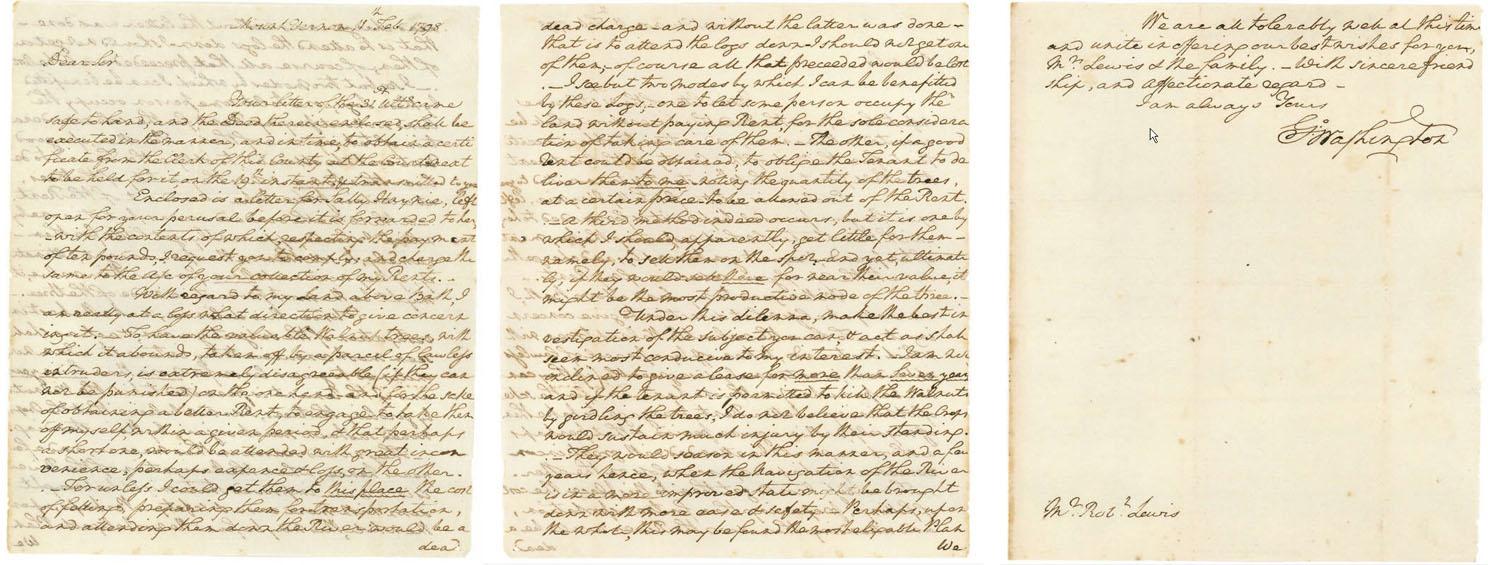 Mount Vernon 8th Feb 1798
Dear Sir
Your letter of the 31 Ulto. came
safe to hand, and the Deed therein enclosed, shall be
executed in the manner, and in time, to obtain a certi
ficate from the Clerk of this County, at the Court next
to be held for it on the 19th instant, & transmitted to you
Enclosed is a letter for Sally Haynie, left
open for your perusal before it is forwarded to her,
–with the contents of which, respecting the payment
of ten pounds, I request you to comply, and charge the
same, to the a/c of your collection of my Rents. –
With regard to my Land above Bath, I
am really at a loss what direction to give concern
ing it. – To have the valuable Walnut trees, with
which it abounds, taken off by a parcel of lawless
intruders, is extremely disagreeable (if they can
not be punished) on the one hand – and for the sake
of obtaining a better Rent, to engage to take them
off myself, within a given period, & that perhaps
a short one, would be attended with great incon
venience, perhaps expence & loss, on the other.
– For unless I could get them to this place, the cost
of felling, preparing them for transportation,
and attending them down the River, would be a
dead
dead charge – and without the latter was done –
that is to attend the logs down I should not get one
of them, – of course all that preceeded would be lost
. – I see but two modes by which I can be benefitted
by these Logs, – one to let some person occupy the
land without paying Rent, for the sole considera
tion of taking care of them. – The other, if a good
Rent could be obtained, to oblige the Tenant to de
liver them to me, noting the quantity of the trees,
at a certain price to be allowed out of the Rent.
– A third method indeed occurs, but it is one by
which I should, apparently, get little for them –
namely, to sell them on the spot, and yet, ultimate
ly, if they would sell there for near their value, it
might be the most productive mode of the three. –
Under this dilemma, make the best in
vestigation of the subject you can, & act as shall
seem most conducive to my interest. – I am not
inclined to give a lease for more than seven years
and if the tenant is permitted to kill the Walnuts
by girdling the trees, I do not believe that the Crops
would sustain much injury by their standing.
– They would season in this manner, and a few
years hence, when the Navigation of the River
is in a more improved state might be brought
down with more ease & safety – Perhaps, upon
the whole, this may be found the most eligable Plan
We
We are all tolerably well at this time
and unite in offering our best wishes for you,
Mrs Lewis & the family. – With sincere friend
ship, and affectionate regard –
I am always Yours
Go: Washington
Mr. Robt. Lewis